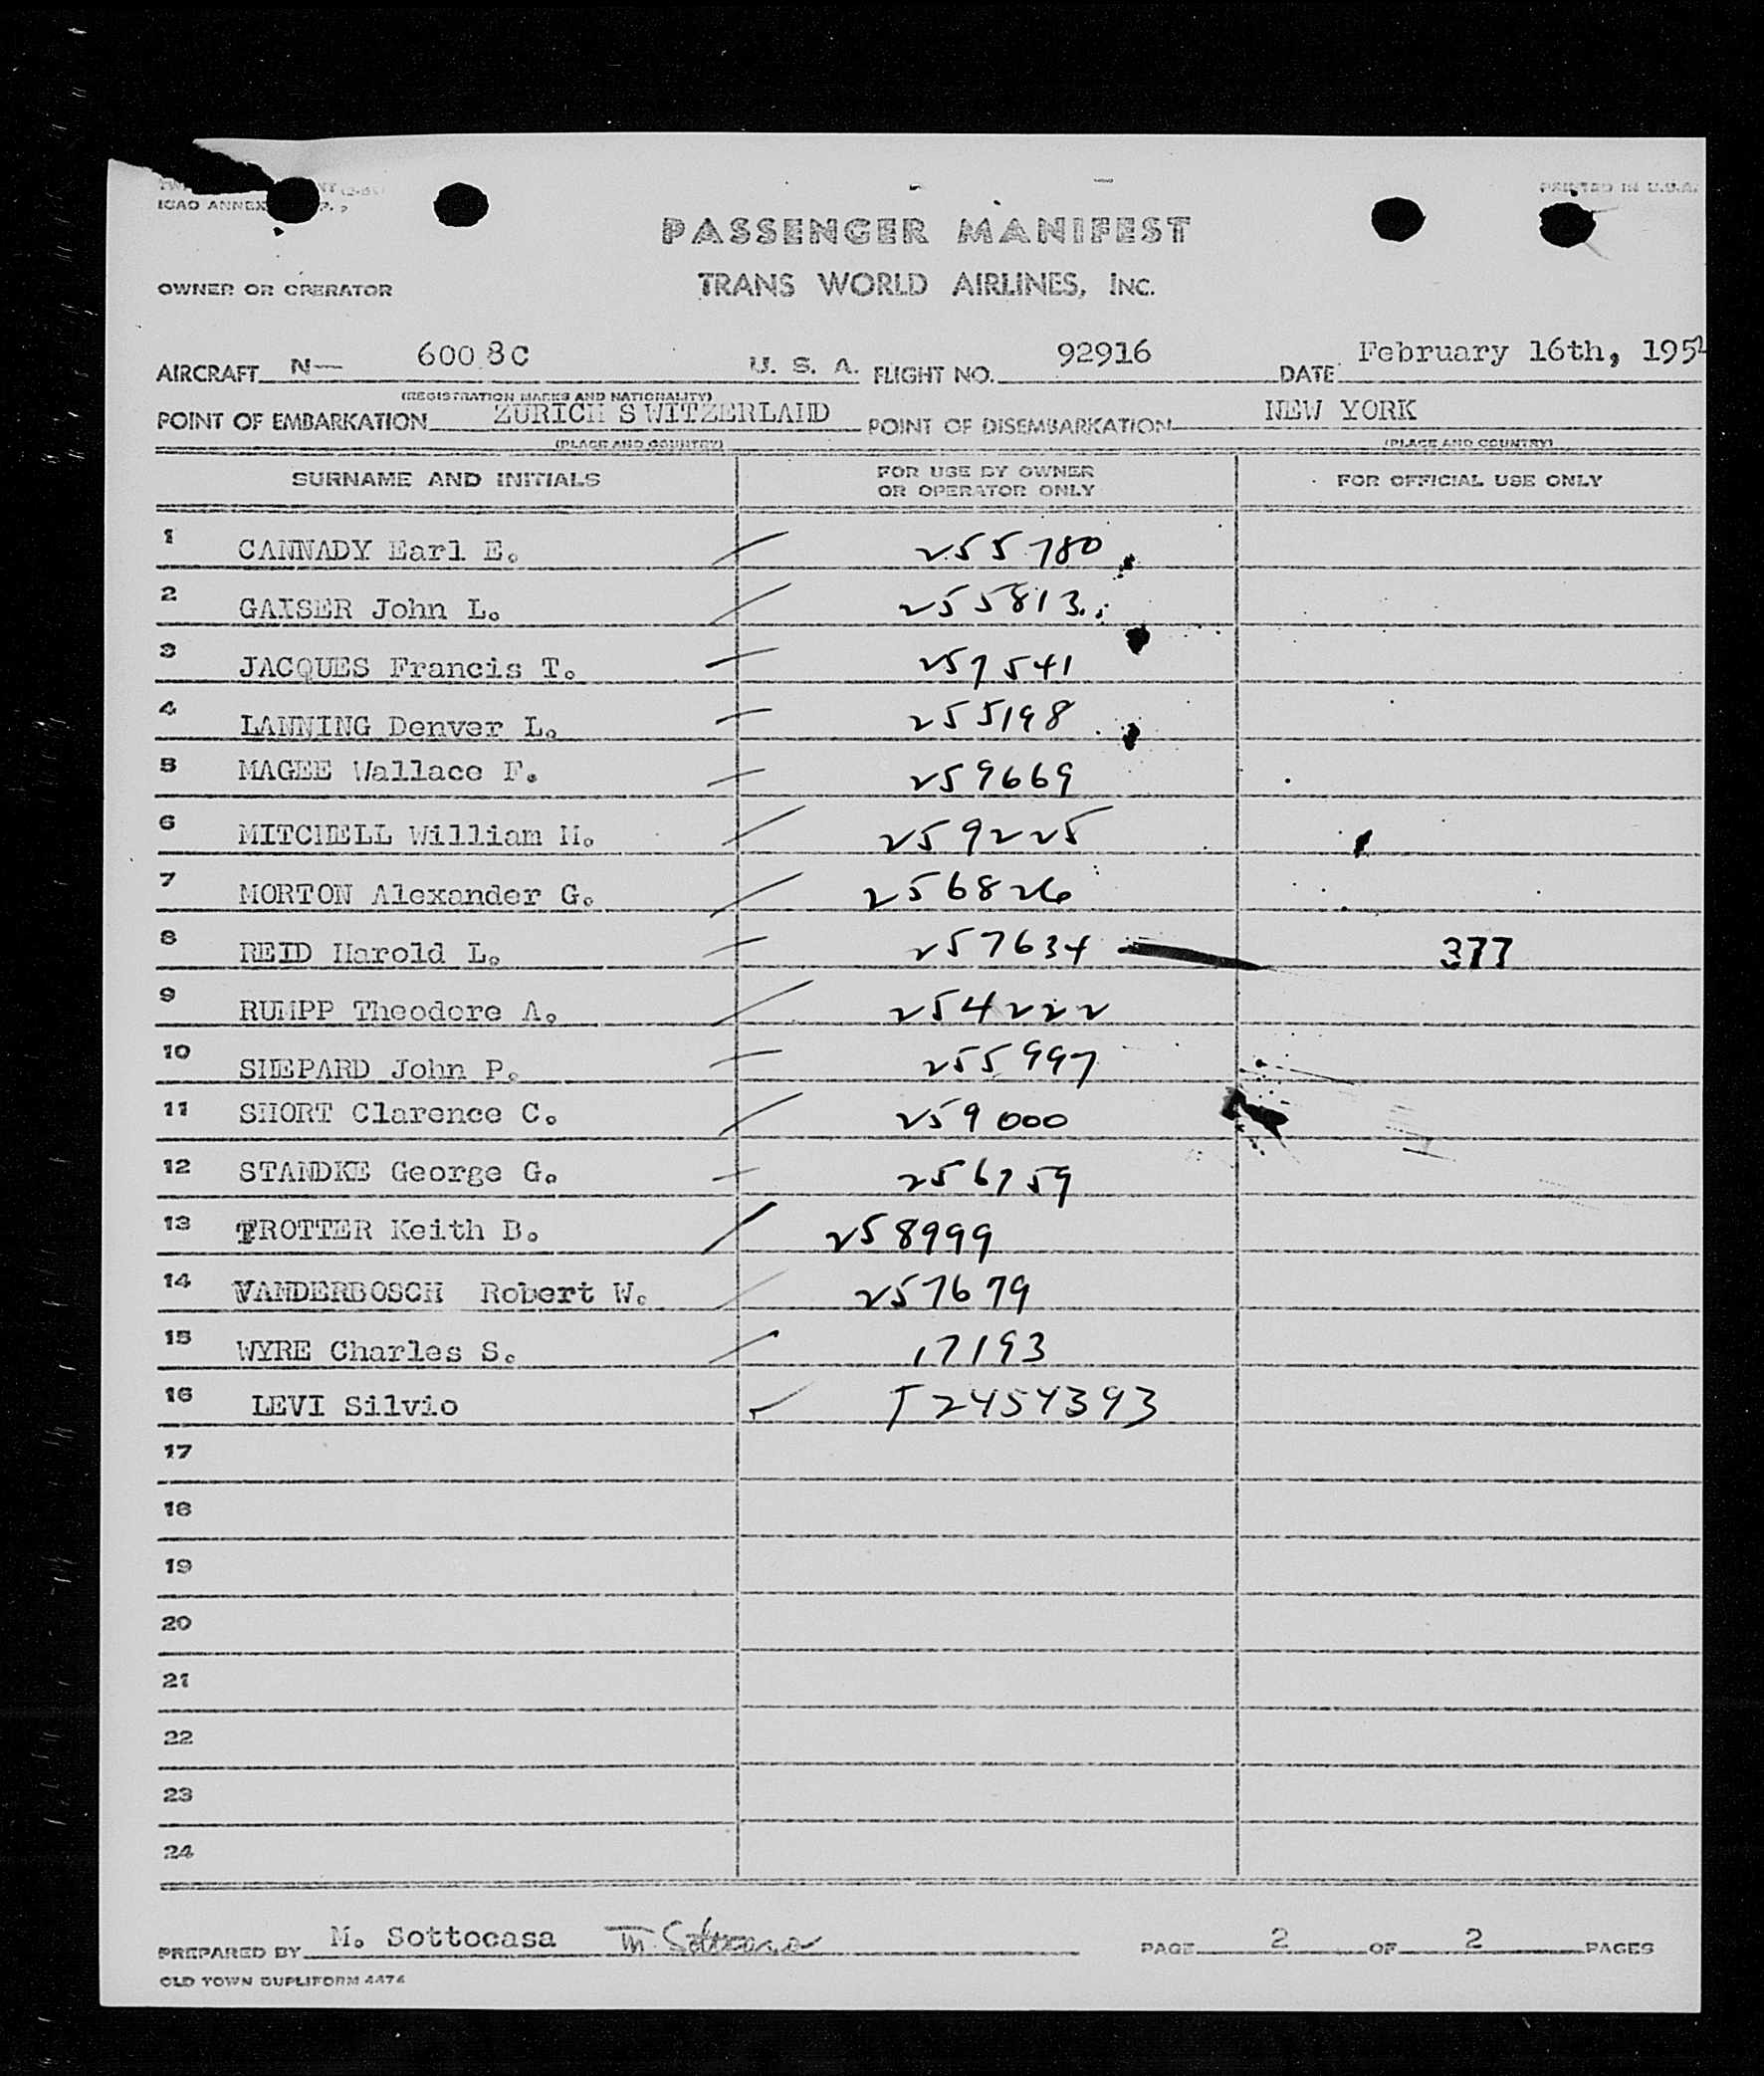 ICAO ANNEX
PRINTED IN U.S.A.
PASSENGER MANIFEST
OWNER OR OPERATOR TRANS WORLD AIRLINES, INC.
AIRCRAFT N— 6008C U. S. A. FLIGHT NO. 92916 DATE February 16th, 195
(REGISTRATION MARKS AND NATIONALITY)
POINT OF EMBARKATION ZURICH SWITZERLAND POINT OF DISEMBARKATION NEW YORK
(PLACE AND COUNTRY) (PLACE AND COUNTRY)
SURNAME AND INITIALS FOR USE BY OWNER OR OPERATOR ONLY FOR OFFICIAL USE ONLY
1 CANNADY Earl E. 255780
2 GAISER John L. 255813
3 JACQUES Francis T. 257541
4 LANNING Denver L. 255198
5 MAGEE Wallace F. 259669
6 MITCHELL William H. 259225
7 MORTON Alexander G. 256826
8 REID Harold L. 257634 — 377
9 RUMPP Theodore A. 254222
10 SHEPARD John P. 255997
11 SHORT Clarence C. 259000
12 STANDKE George G. 256759
13 TROTTER Keith B. 258999
14 VANDERBOSCH Robert W. 257679
15 WYRE Charles S. 17193
16 LEVI Silvio T2454393
17
18
19
20
21
22
23
24
PREPARED BY M. Sottocasa M. Sottocasa PAGE 2 OF 2 PAGES
OLD TOWN DUPLIFORM 4474